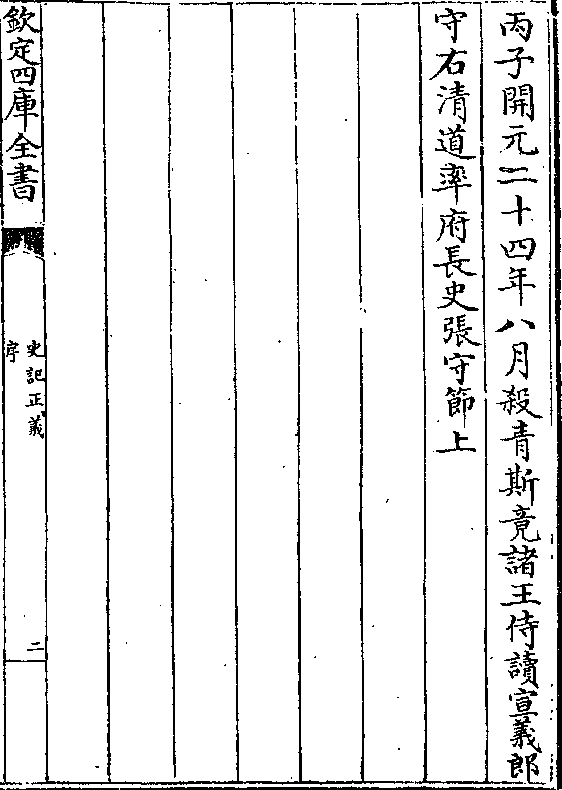 丙子開元二十四年八月殺青斯竟諸王侍讀宣義郎
守右清道率府長史張守節上
欽定四庫全書
史記正義
序
二